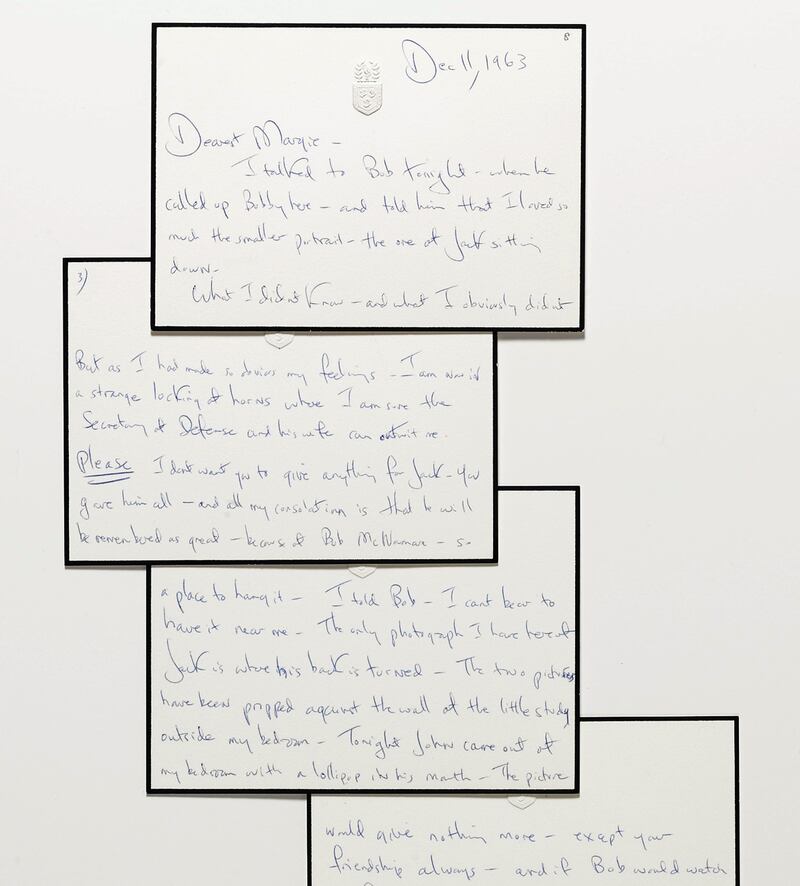 8
Dec 11, 1963
Dearest Margie –
I talked to Bob tonight – when he
called up Bobby here – and told him that I loved so
much the smaller portrait – the one of Jack sitting
down –
What I didn't know – and what I obviously didn't
3)
But as I had made so obvious my feelings – I am now in
a strange locking of horns where I am sure the
Secretary of Defense and his wife can outwit me.
Please I dont want you to give anything for Jack – You
gave him all – and all my consolation is that he will
be remembered as great – because of Bob McNamara – so
a place to hang it – I told Bob – I cant bear to
have it near me – The only photograph I have here of
Jack is where his back is turned – The two pictures
have been propped against the wall of the little study
outside my bedroom – Tonight John came out of
my bedroom with a lollipop in his mouth – The picture
would give nothing more – except your
friendship always – and if Bob would watch